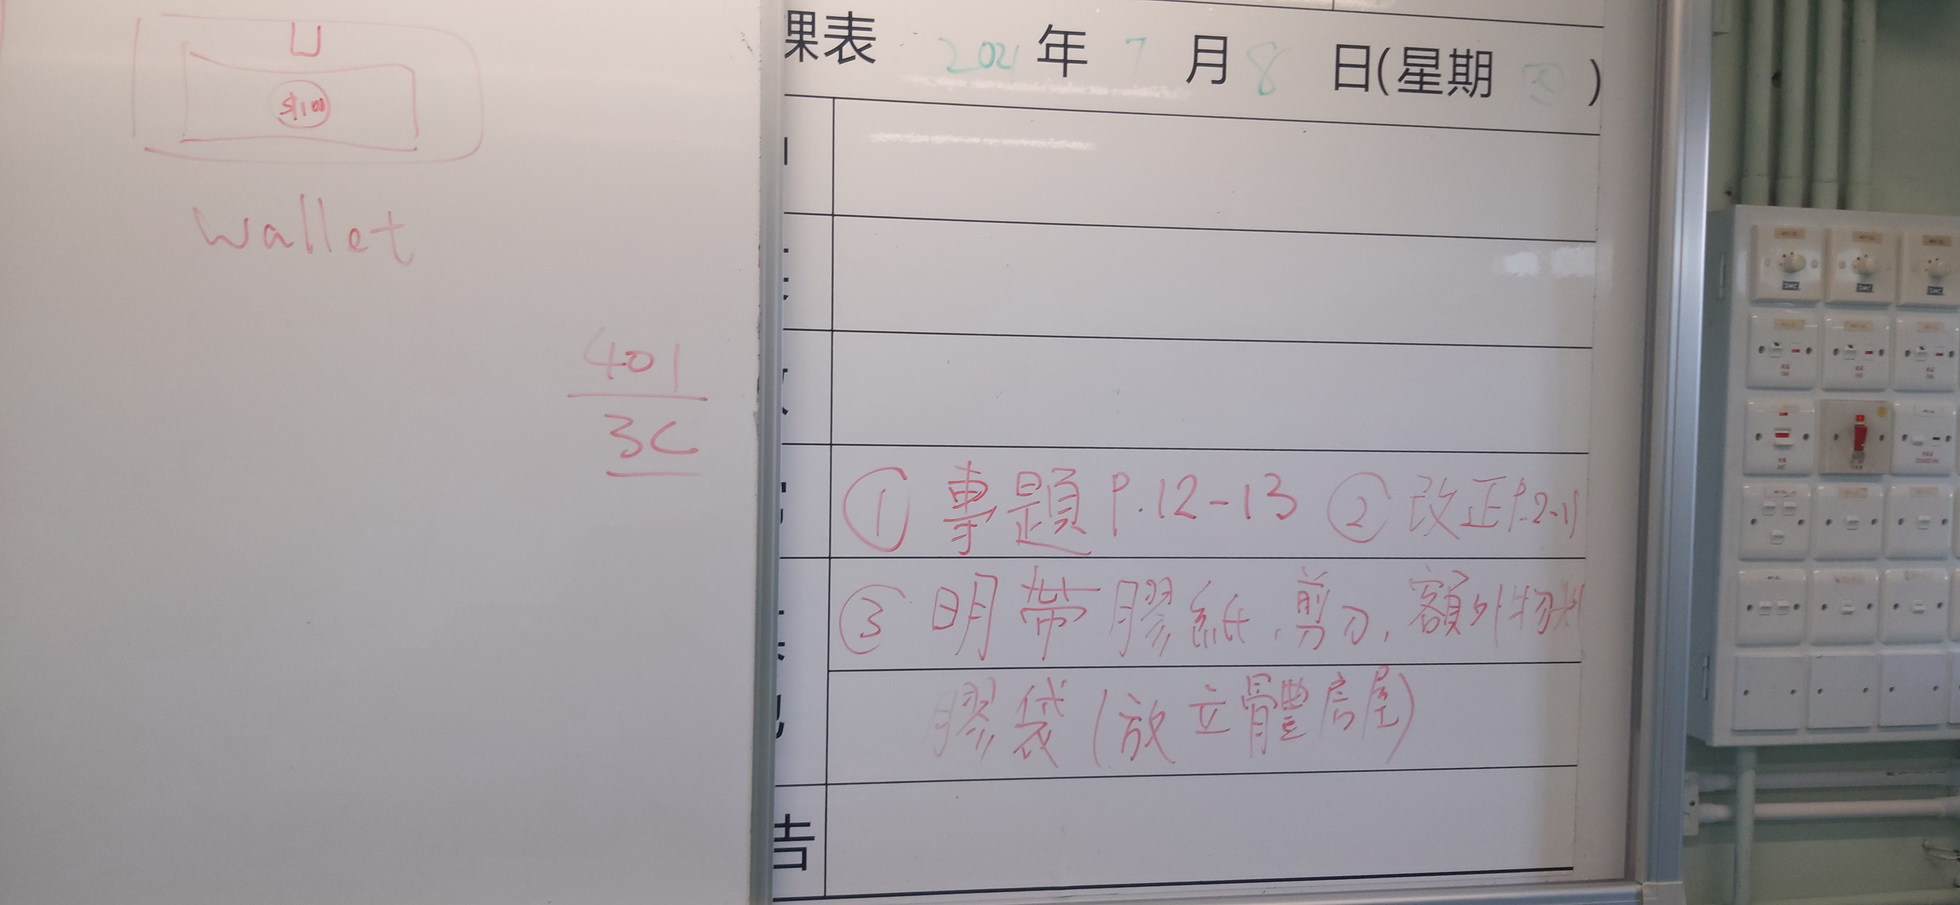 $100
wallet
401
3C
課表 2021 年 7 月 8 日(星期 四 )
① 專題 P.12-13 ② 改正 P.2-11
③ 明帶膠紙, 剪刀, 額外物料
膠袋 (放立體房屋)
告